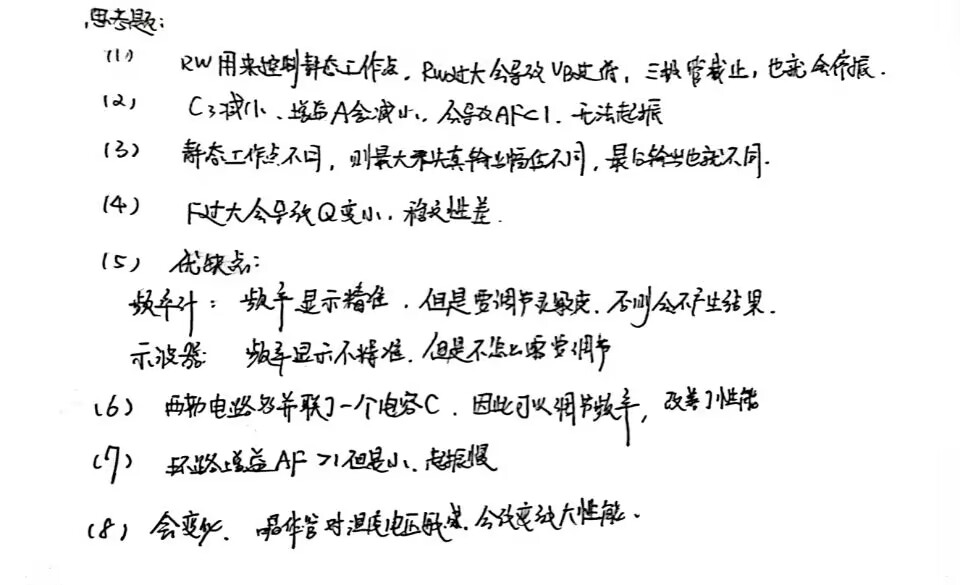 思考题:
(1) RW用来控制静态工作点, RW过大会导致VB过小, 三极管截止, 也就会停振.
(2) C3减小、增益A会减小, 会导致AF<1. 无法起振
(3) 静态工作点不同, 则最大不失真输出幅值不同, 最后输出也就不同.
(4) F过大会导致Q变小, 稳定性差.
(5) 优缺点:
频率计: 频率显示精准, 但是要调节灵敏度, 否则会不产生结果.
示波器: 频率显示不精准, 但是不怎么需要调节
(6) 两种电路都并联了一个电容C, 因此可以调节频率, 改善了性能
(7) 环路增益AF>1但是小、起振慢
(8) 会变化. 晶体管对温度电压敏感, 会改变放大性能.